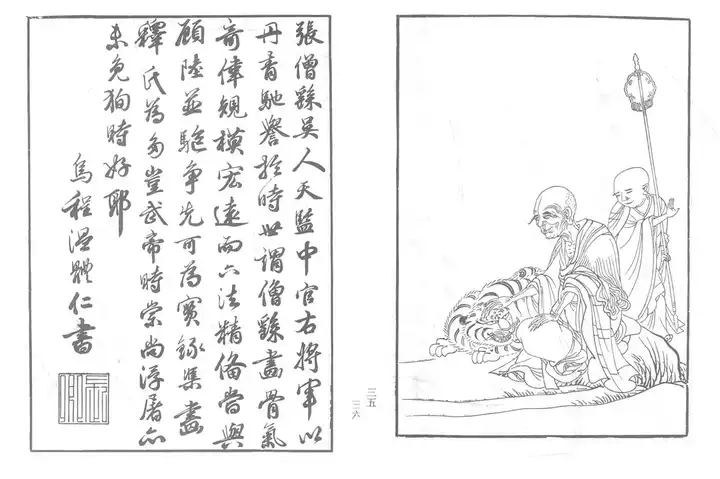 張僧繇吳人天監中官右將軍以
丹青馳譽於時世謂僧繇畫骨氣
竒偉規模宏遠而六法精備當與
顧陸並駈爭先可為實錄畫
釋氏為多豈武帝時崇尚浮屠亦
未免狥時好耶
烏程溫體仁書
三五
三六